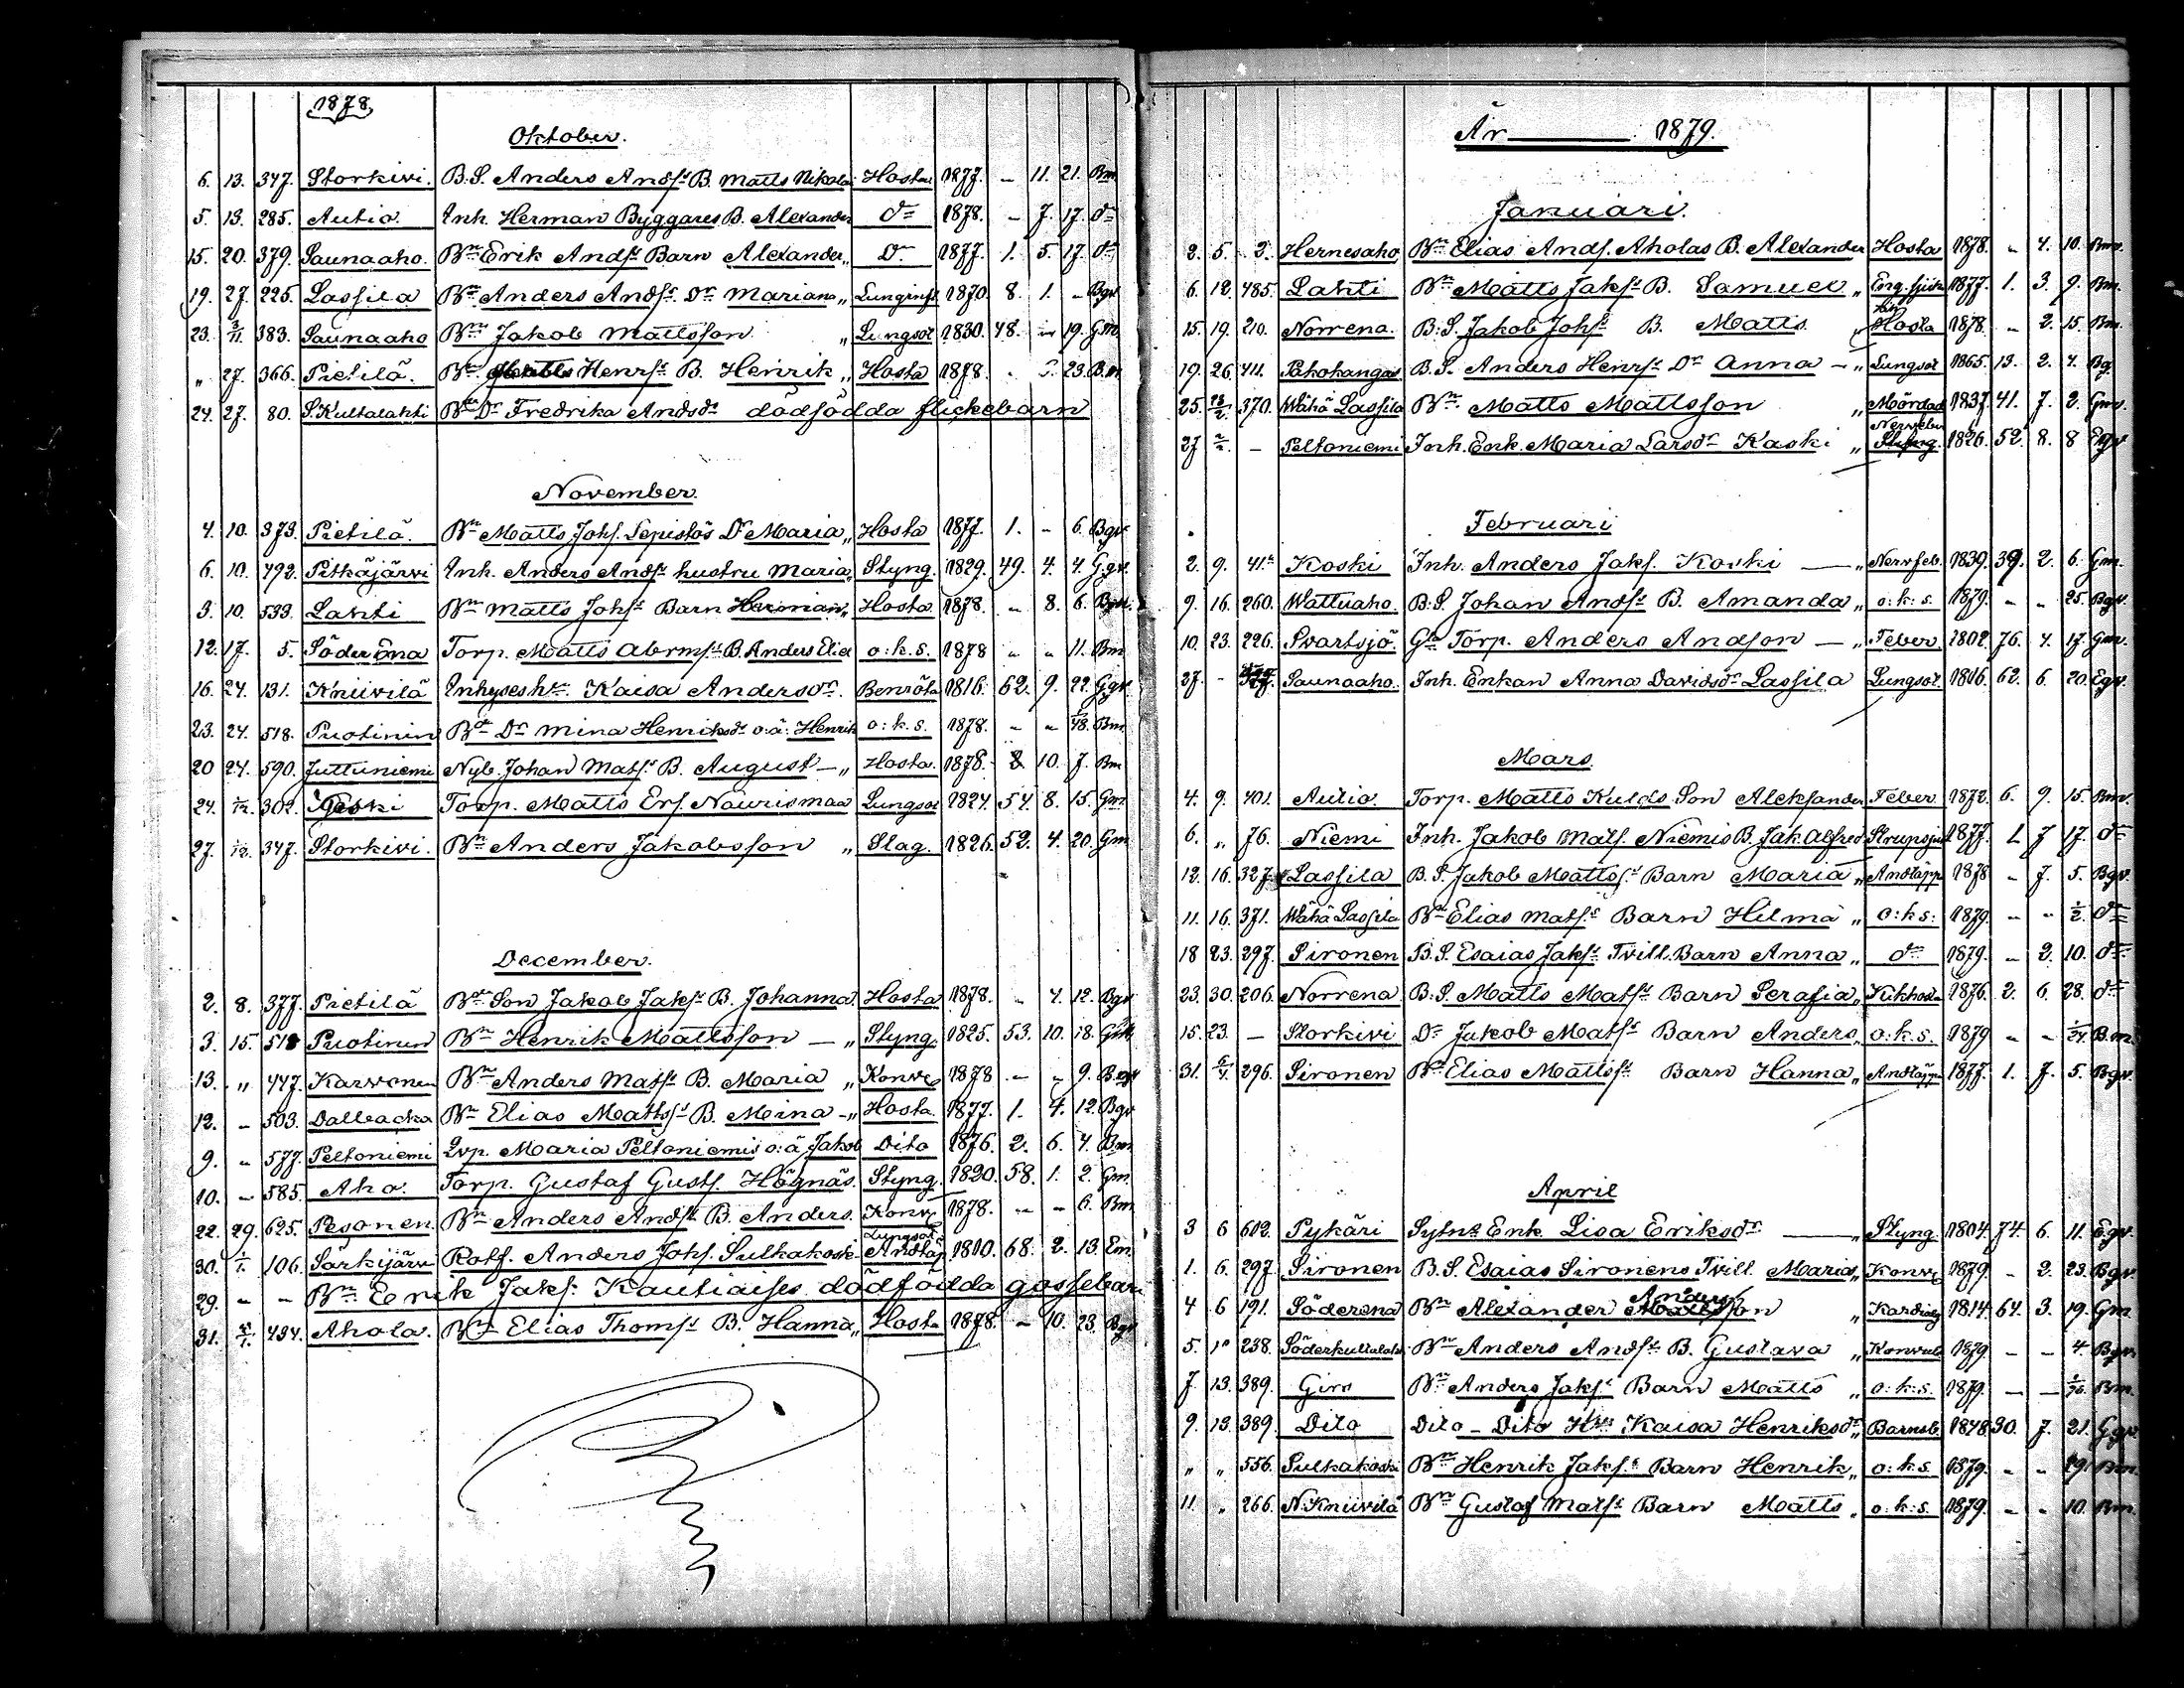 1878
Oktober.
6. 13. 347. Storkivi. B.S. Anders Andss B. Matts Nikolai Hosta 1877. - 11. 21. Bm
5. 13. 285. Autio. Inh. Herman Byggares B. Alexander do 1878. - 7. 17. do
15. 20. 379. Saunaaho. Bn Erik Andss Barn Alexander „ Do 1877. 1. 5. 17. do
19. 27. 225. Lassila Bn Anders Andss Dr Mariana „ 1870. 8. 1. - Bgv
23. 3/11. 383. Saunaaho Bn Jakob Mattsson „ Lungsot 1830. 48. - 19. Gm.
„ 27. 366. Pietilä. Bn Henrss B. Henrik „ Hosta 1878. - 23. Bm
24. 27. 80. S.Kultalahti Bn Dr Fredrika Andsdr dödfödda flickebarn
November.
4. 10. 373. Pietilä. Bn Matts Johs. Lepistös Dr Maria „ Hosta 1877. 1. - 6. Bgv.
6. 10. 492. Pitkäjärvi Inh. Anders Andss hustru Maria „ Styng. 1829. 49. 4. 4. Ggv.
3. 10. 533. Lahti Bn Matts Johss Barn Herman „ Hosta 1878. - 8. 6. Bgv.
12. 17. 5. Söderena Torp. Matts Abrmss B. Anders Elia o:k.s. 1878 „ „ 11. Bm
16. 24. 131. Kniivilä Inhyses hu Kaisa Andersdr. Benröta 1816. 62. 9. 22. Ggv.
23. 24. 518. Puotinen Bn Dr Mina Henriksdr o:ä: Henrik o:k.s. 1878. - - 1/48. Bm.
20 24. 590. Juttuniemi Nyb. Johan Matss B. August — „ Hosta. 1878. - 10. 7. Bm
24. 1/12. 302. Torp. Matts Ers. Naurismaa Lungsot 1824. 54. 8. 15. Gm
27. 1/12. 347. Storkivi. Bn Anders Jakobsson „ Slag. 1826. 52. 4. 20. Gm
December.
2. 8. 377. Pietilä Bn Son Jakob Jakss B. Johanna Hosta 1878. - 4. 12. Bgv
3. 15. 518 Puotinen Bn Henrik Mattsson — „ Styng. 1825. 53. 10. 18. Gm
13. „ 447. Karvonen Bn Anders Matss B. Maria „ Konve 1878 - - 9. Bgv
12. - 503. Dalbacka Bn Elias Mattss B. Mina - „ Hosta. 1877. 1. 4. 12. Bgv
9. „ 577. Peltoniemi Qvp. Maria Peltoniemis o:ä Jakob Dito 1876. 2. 6. 4. Bm
10. - 585. Aho. Torp. Gustaf Gusts. Högnäs. Styng. 1820. 58. 1. 2. Gm.
22. 29. 625. Pesonen. Bn Anders Andss B. Anders. Konv 1878. - - 6. Bm
30. 1/1. 106. Särkijärvi Rotf. Anders Johs. Sulkakoski Lungsot Andtäp 1810. 68. 2. 13. Em.
29. - - Bn Erik Jaks. Kautiaises dödfödda gossebarn
31. 5/1. 494. Ahola. Bn Elias Thomss B. Hanna „ Hosta 1878. - 10. 23. Bgv
År 1879.
Januari.
2. 5. 2. Hernesaho Bn Elias Ands. Aholas B. Alexander Hosta 1878. - 4. 10. Bm.
6. 12. 485. Lahti Bn Matts Jakss B. Samuel „ Eng. sjuk 1877. 1. 3. 9. Bm.
15. 19. 210. Norrena. B.S. Jakob Johss B. Matts „ Hosta 1878. - 2. 15. Bm.
19. 26. 411. Pohokangas B.S. Anders Henrss Dr Anna — „ Lungsot 1865. 13. 2. 4. Bg.
25. 370. Wähä Lassila Bn Matts Mattsson „ Mördad 1837. 41. 7. 2. Gm.
27 2/2. - Peltoniemi Inh. Enk. Maria Larsdr Kaski „ 1826. 52. 8. 8 Egv
Februari
2. 9. 41. Koski Inh. Anders Jaks. Koski — „ Nervfeb. 1839. 39. 2. 6. Gm.
9. 16. 260. Wattuaho. B.S. Johan Andss B. Amanda „ o:k:s. 1879. - - 25. Bgv.
10. 23. 226. Svartsjö. Gla Torp. Anders Andson — „ Feber. 1802. 76. 4. 17. Gm.
27. - Saunaaho. Inh. Enkan Anna Davidsdr Lassila Lungsot. 1816. 62. 6. 20. Egv.
Mars
4. 9. 401. Autio. Torp. Matts Kulds Son Aleksander Feber 1872. 6. 9. 15. Bm.
6. „ 76. Niemi Inh. Jakob Mats. Niemis B. Jak. Alfred Strupsjuk 1877. 1. 7 17. do
12. 16. 327. Lassila B.S. Jakob Mattss Barn Maria „ Andtäppa 1878 - 7. 5. Bgv.
11. 16. 371. Wähä Lassila Bn Elias Matss Barn Hilma „ o:k:s: 1879. - - 1/2. do
18 23. 297. Sironen B.S. Esaias Jakss Tvill. Barn Anna „ do 1879. - 2. 10. do
23. 30. 206. Norrena B.S. Matts Matss Barn Serafia „ Kikhosta 1876. 2. 6. 28. do
15. 23. — Storkivi Dr Jakob Matss Barn Anders „ o:k.s. 1879 - - 1/24. Bm.
31. 6/4. 296. Sironen Bn Elias Mattss Barn Hanna „ Andtäppa 1877. 1. 7. 5. Bgv.
April
3 6 602. Pykäri Sytn. Enk. Lisa Eriksdr — „ Styng. 1804. 74. 6. 11. Egv.
1. 6. 297. Sironen B.S. Esaias Sironens Tvill. Maria „ Konv 1879. - 2. 23. Bgv.
4 6 191. Söderena Bn Alexander Andersson „ 1814. 64. 3. 19. Gm.
5. 238. Söderkultalahti Bn Anders Andss B. Gustava „ Konvuls 1879. - - 4. Bgv.
7 13. 389. Giro Bn Anders Jakss Barn Matts „ o:k:s. 1879. - - Bm.
9. 13. 389. Dito Dito - Dito Hu Kaisa Henriksdr „ Barnsb. 1848. 30. 7. 21. Ggv.
„ „ 556. Sulkakoski Bn Henrik Jakss Barn Henrik „ o:k.s. 1879. - - 19. Bm.
11. „ 266. N.Kniivilä Bn Gustaf Matss Barn Matts „ o:k:s. 1879. - - 10. Bm.